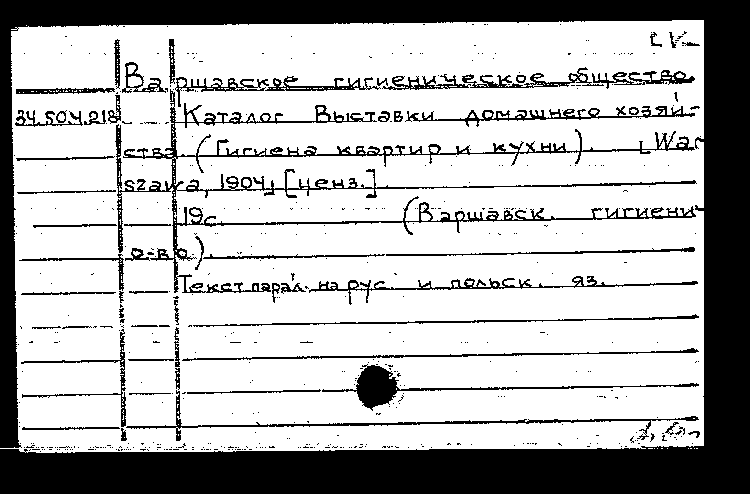 LK
Варшавское гигиеническое общество.
34.504.218 Каталог Выставки домашнего хозяй-
ства (Гигиена квартир и кухни). [War
szawa, 1904] [ценз.].
19с. (Варшавск. гигиени-
о-во).
Текст парал. на рус. и польск. яз.